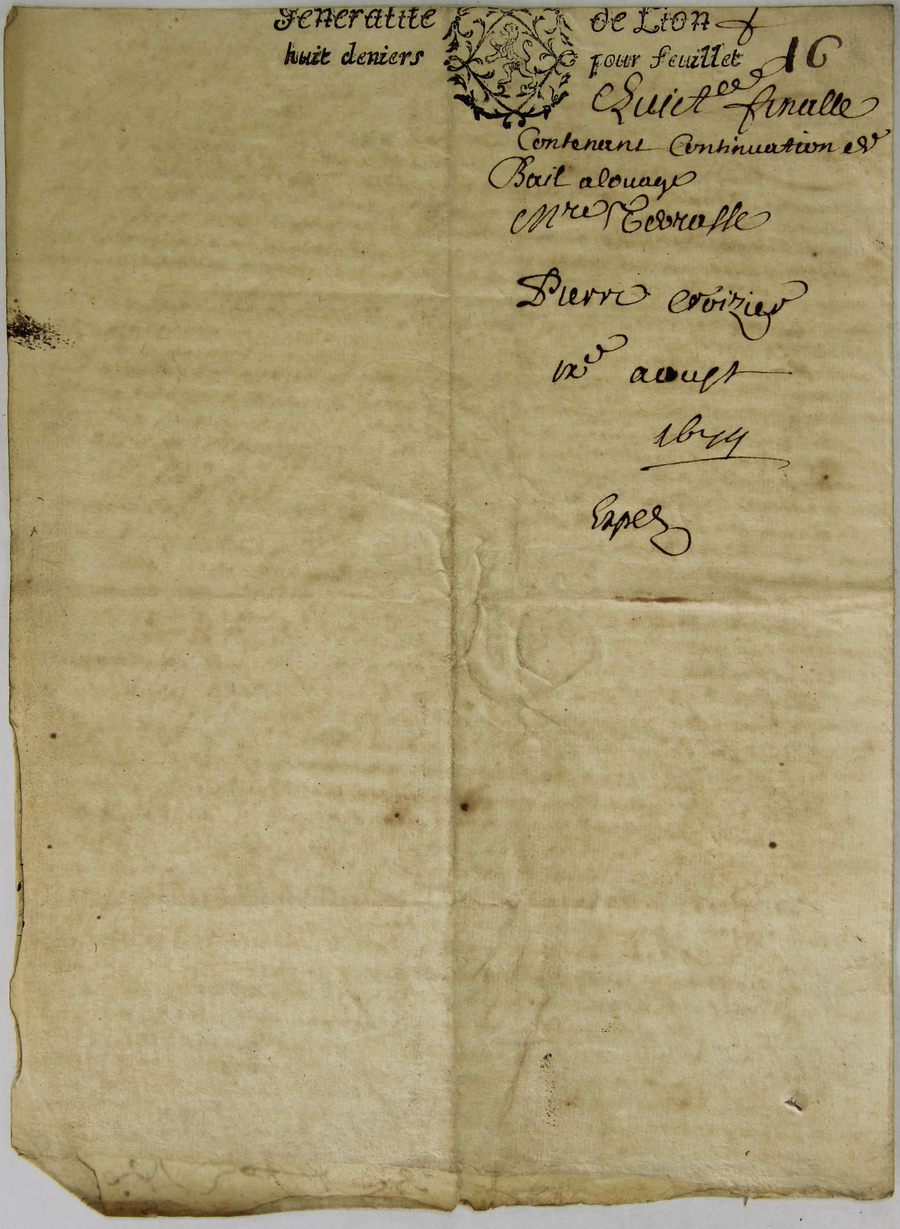 Generalité de Lion
huit deniers pour feuillet 16
Quict^ce finalle
Contenant Continuation de
Bail a louage
M^re Terrasse
Pierre Croizier
ix^e aoust
1679
Exped